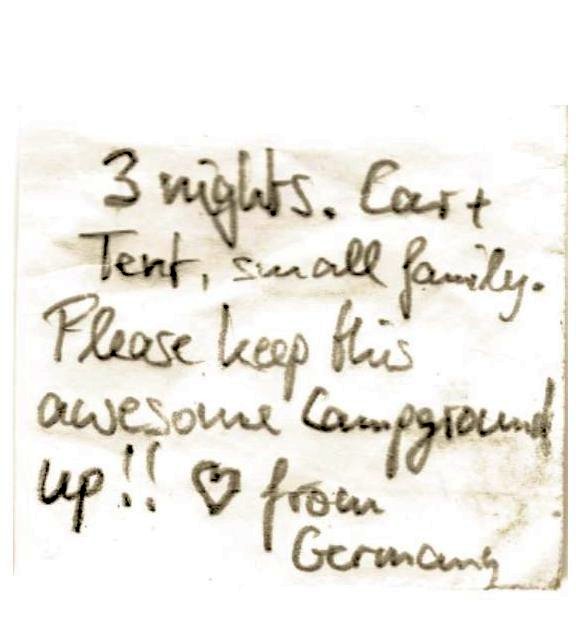 3 nights. Car +
Tent, small family.
Please keep this
awesome Campground
up!! ♡ from
Germany